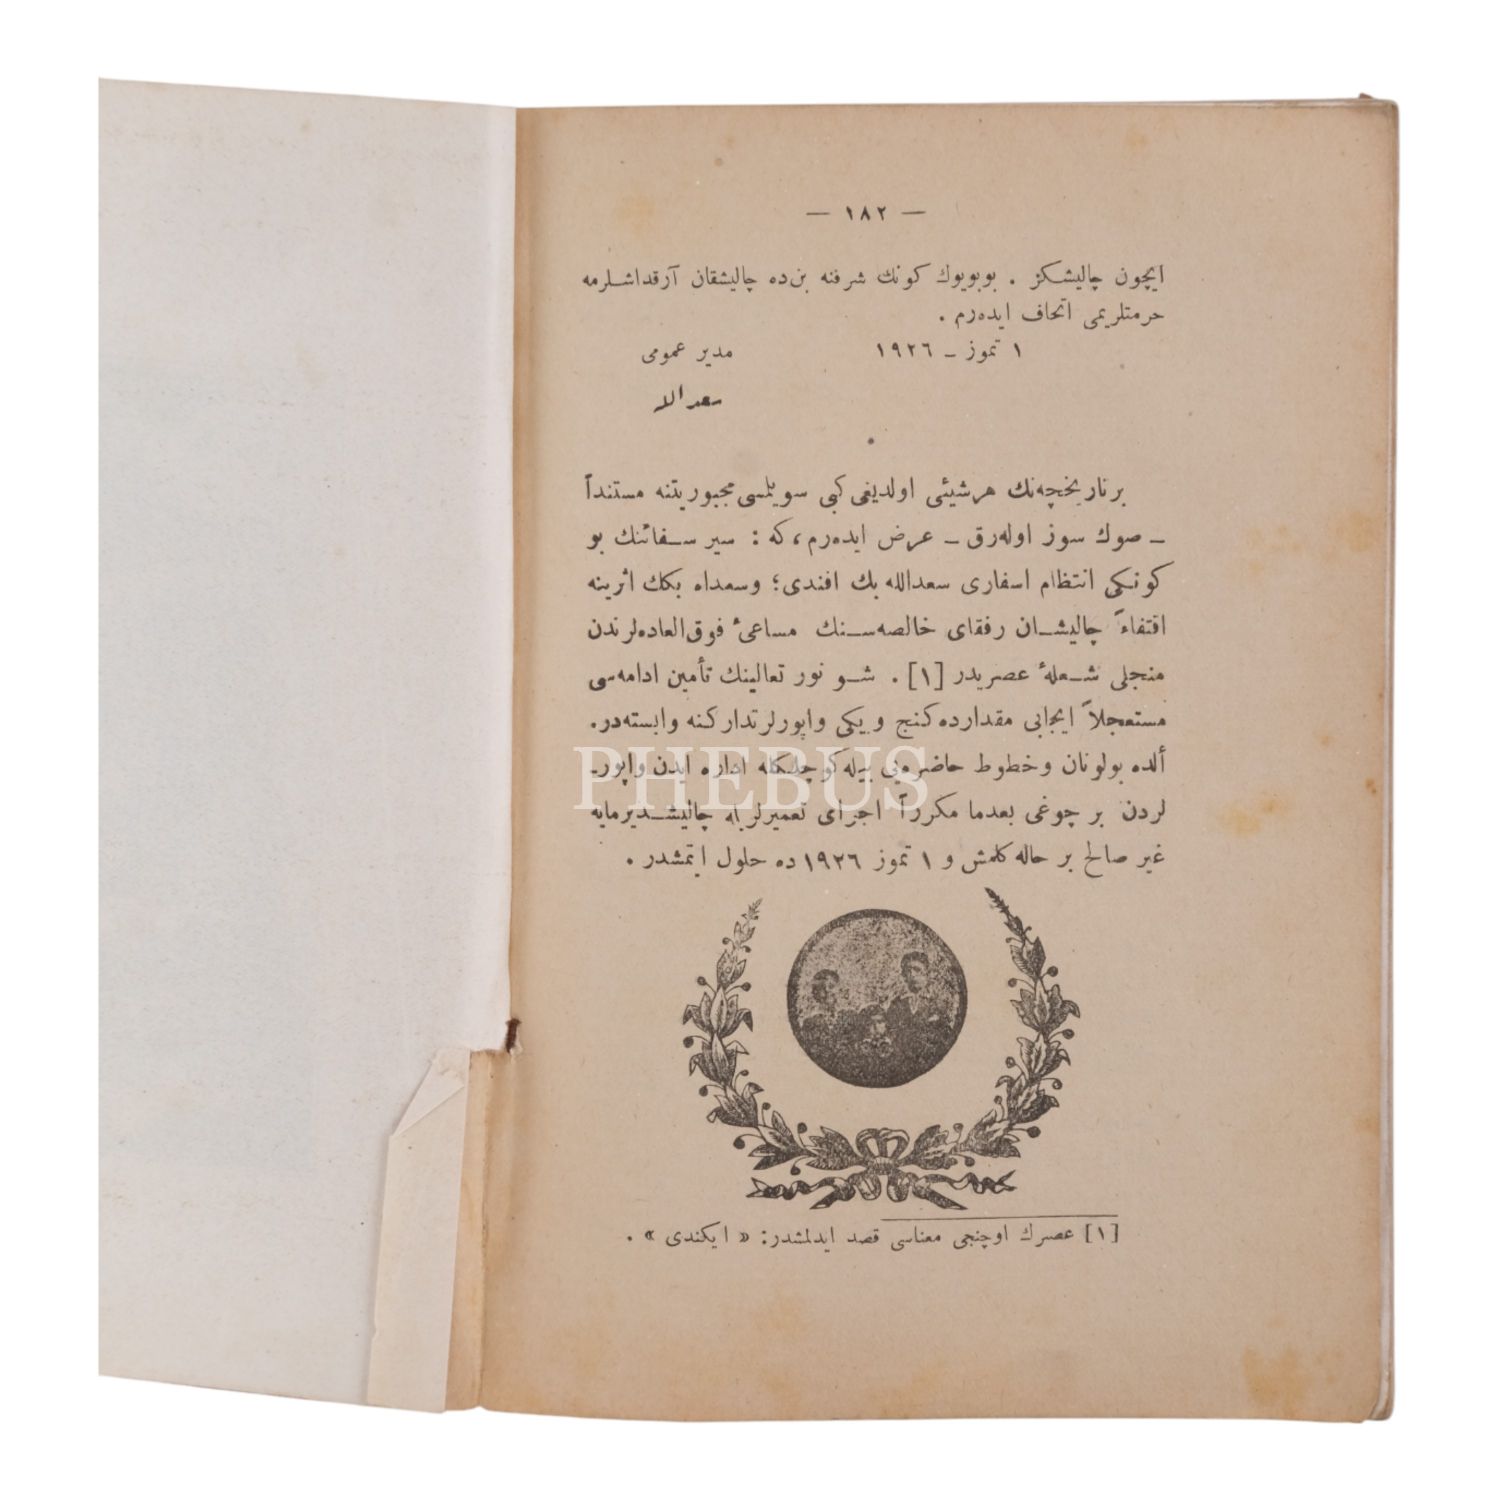 — ١٨٢ —
ایچون چالیشكز . بوبویوك كونك شرفنه بن ده چالیشقان آرقداشلرمه
حرمتلریمی اتحاف ایده رم .
١ تموز ـ ١٩٢٦ مدیر عمومی
سعدالله
برتاریخچه نك هرشیئی اولدیغی كبی سویلمسی مجبوریتنه مستنداً
ـ صوك سوز اوله رق ـ عرض ایده رم ، كه : سیر سفائنك بو
كونكی انتظام اسفاری سعدالله بك افندی؛ وسعداه بكك اثرینه
اقتفاءً چالیشان رفقای خالصه سنك مساعیٔ فوق العاده لرندن
منجلی شعلهٔ عصریدر [١] . شو نور تعالینك تأمین ادامه سی
مستعجلاً ایجابی مقدارده كنج و یكی واپورلر تداركنه وابسته در.
ألده بولونان و خطوط حاضره یی بیله كوچلكله اداره ایدن واپورـ
لردن بر چوغی بعدما مكرراً اجرای تعمیرلر ایله چالیشدیرمایه
غیر صالح بر حاله كلمش و ١ تموز ١٩٢٦ ده حلول ایتمشدر .
[١] عصرك اوچنجی معناسی قصد ایدلمشدر: « ایكندی » .
PHEBUS